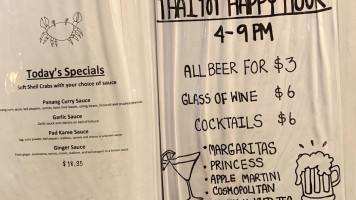 Today's Specials
Soft Shell Crabs with your choice of sauce
Panang Curry Sauce
Garlic Sauce
Pad Karee Sauce
Ginger Sauce
$18.95
THAITOT HAPPY HOUR
4-9 PM
ALL BEER FOR $3
GLASS OF WINE $6
COCKTAILS $6
• MARGARITAS
• PRINCESS
• APPLE MARTINI
• COSMOPOLITAN